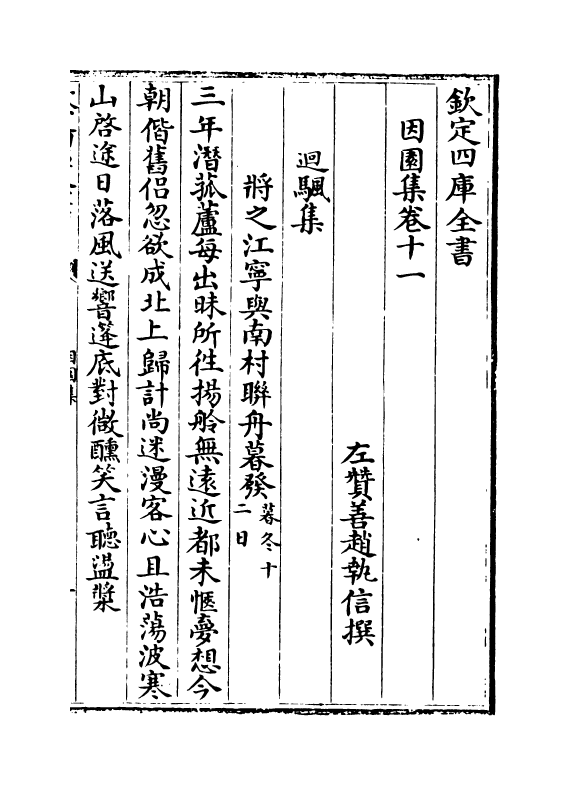 欽定四庫全書
因園集卷十一
左贊善趙執信撰
迴颿集
將之江寧與南村聯舟暮發暮冬十二日
三年潛菰蘆每出昧所徃揚舲無遠近都未愜夢想今
朝偕舊侶忽欲成北上歸計尚迷漫客心且浩蕩波寒
山啓途日落風送響篷底對微醺笑言聽盪槳